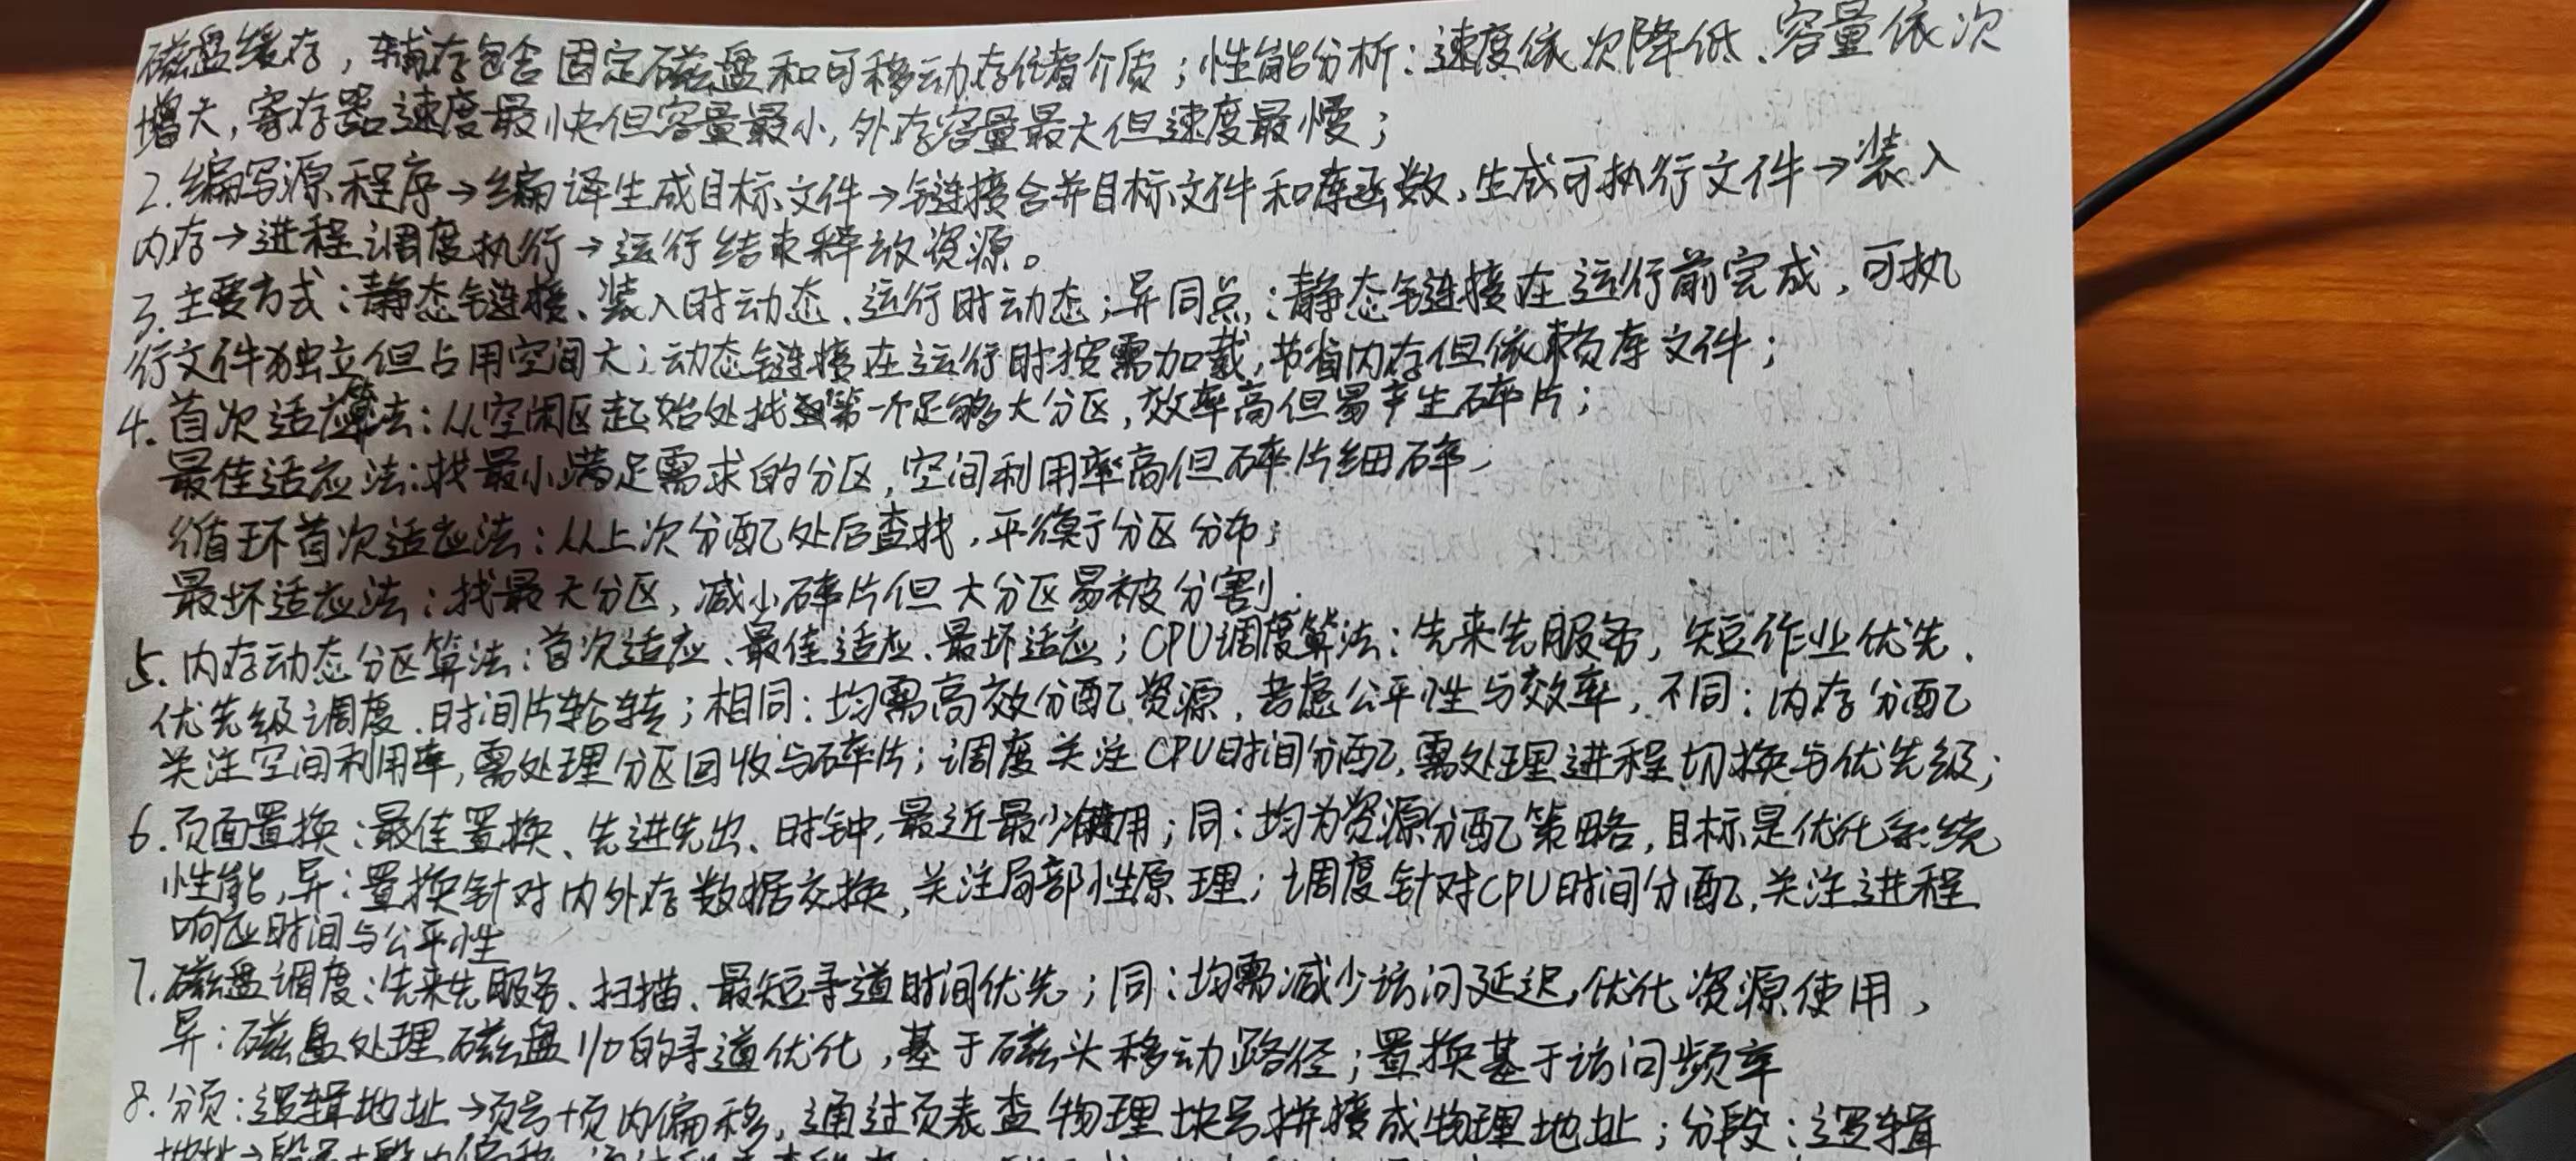 磁盘缓存，辅存包含固定磁盘和可移动存储介质；性能分析：速度依次降低、容量依次
增大，寄存器速度最快但容量最小，外存容量最大但速度最慢；
2.编写源程序→编译生成目标文件→链接合并目标文件和库函数，生成可执行文件→装入
内存→进程调度执行→运行结束释放资源。
3.主要方式：静态链接、装入时动态、运行时动态；异同点：静态链接在运行前完成，可执
行文件独立但占用空间大；动态链接在运行时按需加载，节省内存但依赖库文件；
4.首次适应算法：从空闲区起始处找到第一个足够大分区，效率高但易产生碎片；
最佳适应法：找最小满足需求的分区，空间利用率高但碎片细碎；
循环首次适应法：从上次分配处后查找，平衡了分区分布；
最坏适应法：找最大分区，减小碎片但大分区易被分割.
5.内存动态分区算法：首次适应、最佳适应、最坏适应；CPU调度算法：先来先服务，短作业优先、
优先级调度、时间片轮转；相同：均需高效分配资源，考虑公平性与效率，不同：内存分配
关注空间利用率，需处理分区回收与碎片；调度关注CPU时间分配，需处理进程切换与优先级；
6.页面置换：最佳置换、先进先出、时钟，最近最少使用；同：均为资源分配策略，目标是优化系统
性能，异：置换针对内外存数据交换，关注局部性原理；调度针对CPU时间分配，关注进程
响应时间与公平性
7.磁盘调度：先来先服务、扫描、最短寻道时间优先；同：均需减少访问延迟，优化资源使用，
异：磁盘处理磁盘I/O的寻道优化，基于磁头移动路径；置换基于访问频率
8.分页：逻辑地址→页号+页内偏移，通过页表查物理块号拼接成物理地址；分段：逻辑